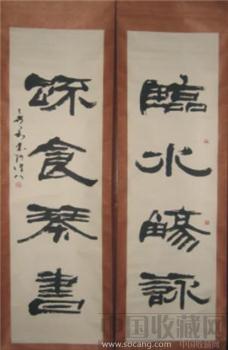 臨水觴詠
疏食琴書
中国收藏网
www.socang.com
中国收藏网